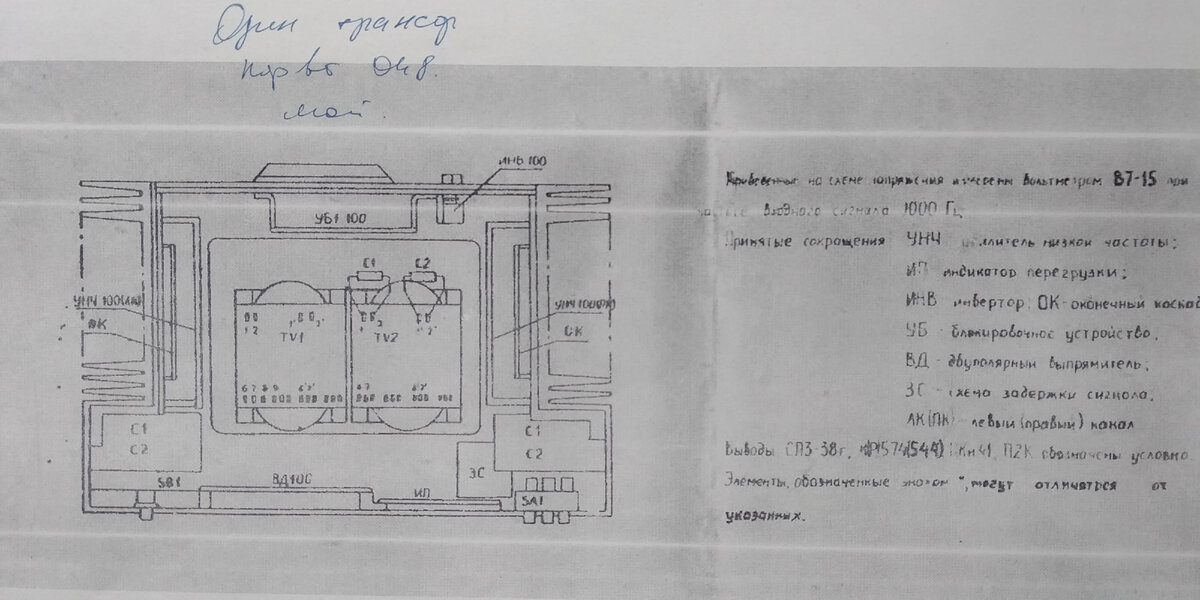 Один трансф
ИНВ 100
УБ1 100
С1 С2
УНЧ 100(ЛК)
УНЧ 100(ПК)
ОК
ОК
1 2
TV1 TV2
6 7 8 9
С1
С2
С1
С2
ЗС
SB1
ВД100
ИП
SA1
Приведенные на схеме напряжения измерены вольтметром В7-15 при
входного сигнала 1000 Гц
Принятые сокращения УНЧ усилитель низкой частоты;
ИП индикатор перегрузки;
ИНВ инвертор; ОК-оконечный каскад
УБ - блокировочное устройство,
ВД - двуполярный выпрямитель;
ЗС - схема задержки сигнала,
ЛК(ПК) - левый (правый) канал
Выводы СП3-38г, П2К обозначены условно.
Элементы, обозначенные знаком *, могут отличаться от
указанных.